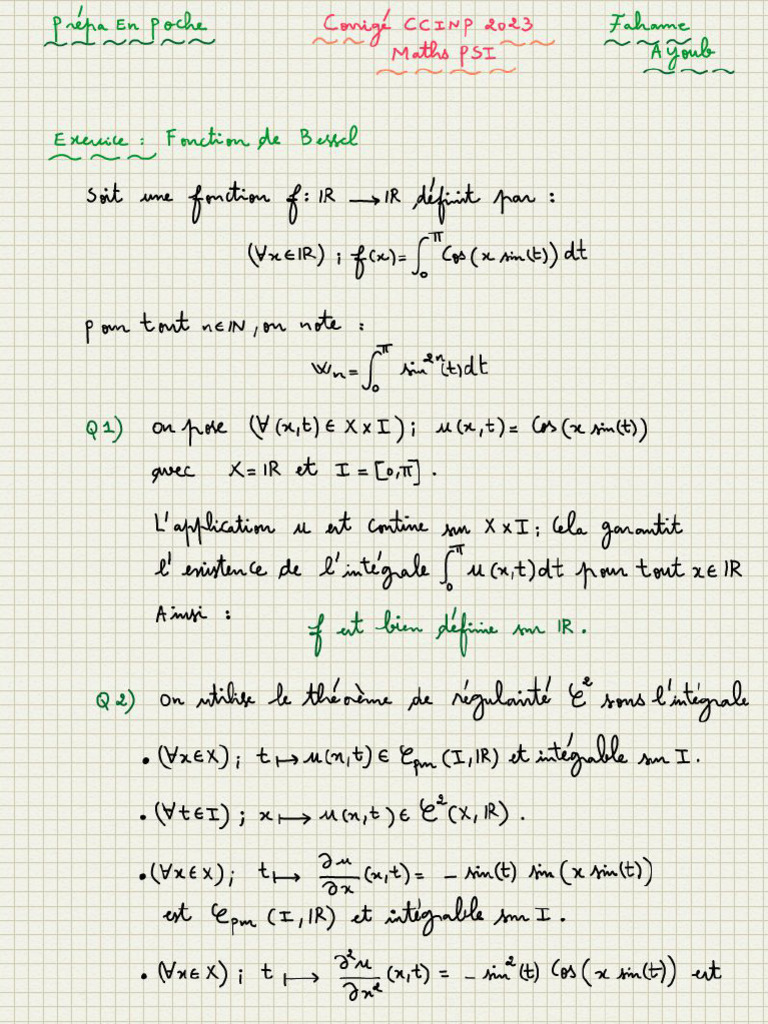 Prépa En Poche
Corrigé CCINP 2023
Maths PSI
Fahame
Ayoub
Exercice : Fonction de Bessel
Soit une fonction f: IR → IR définit par :
(∀x∈IR) ; f(x)= ∫₀^π Cos(x sin(t)) dt
pour tout n∈IN, on note :
Wn = ∫₀^π sin²ⁿ(t)dt
Q1) on pose (∀(x,t) ∈ X×I) ; u(x,t)= Cos(x sin(t))
avec X=IR et I=[0,π] .
L'application u est contine sur X×I ; Cela garantit
l'existence de l'intégrale ∫₀^π u(x,t)dt pour tout x∈IR
Ainsi :
f est bien définie sur IR.
Q2) On utilise le théorème de régularité C² sous l'intégrale
• (∀x∈X) ; t↦u(x,t) ∈ Cpm (I,IR) et intégrable sur I.
• (∀t∈I) ; x↦u(x,t) ∈ C²(X,IR) .
• (∀x∈X) ; t↦ ∂u/∂x (x,t) = - sin(t) sin(x sin(t))
est Cpm (I,IR) et intégrable sur I.
• (∀x∈X) ; t ↦ ∂²u/∂x² (x,t) = - sin²(t) Cos(x sin(t)) est